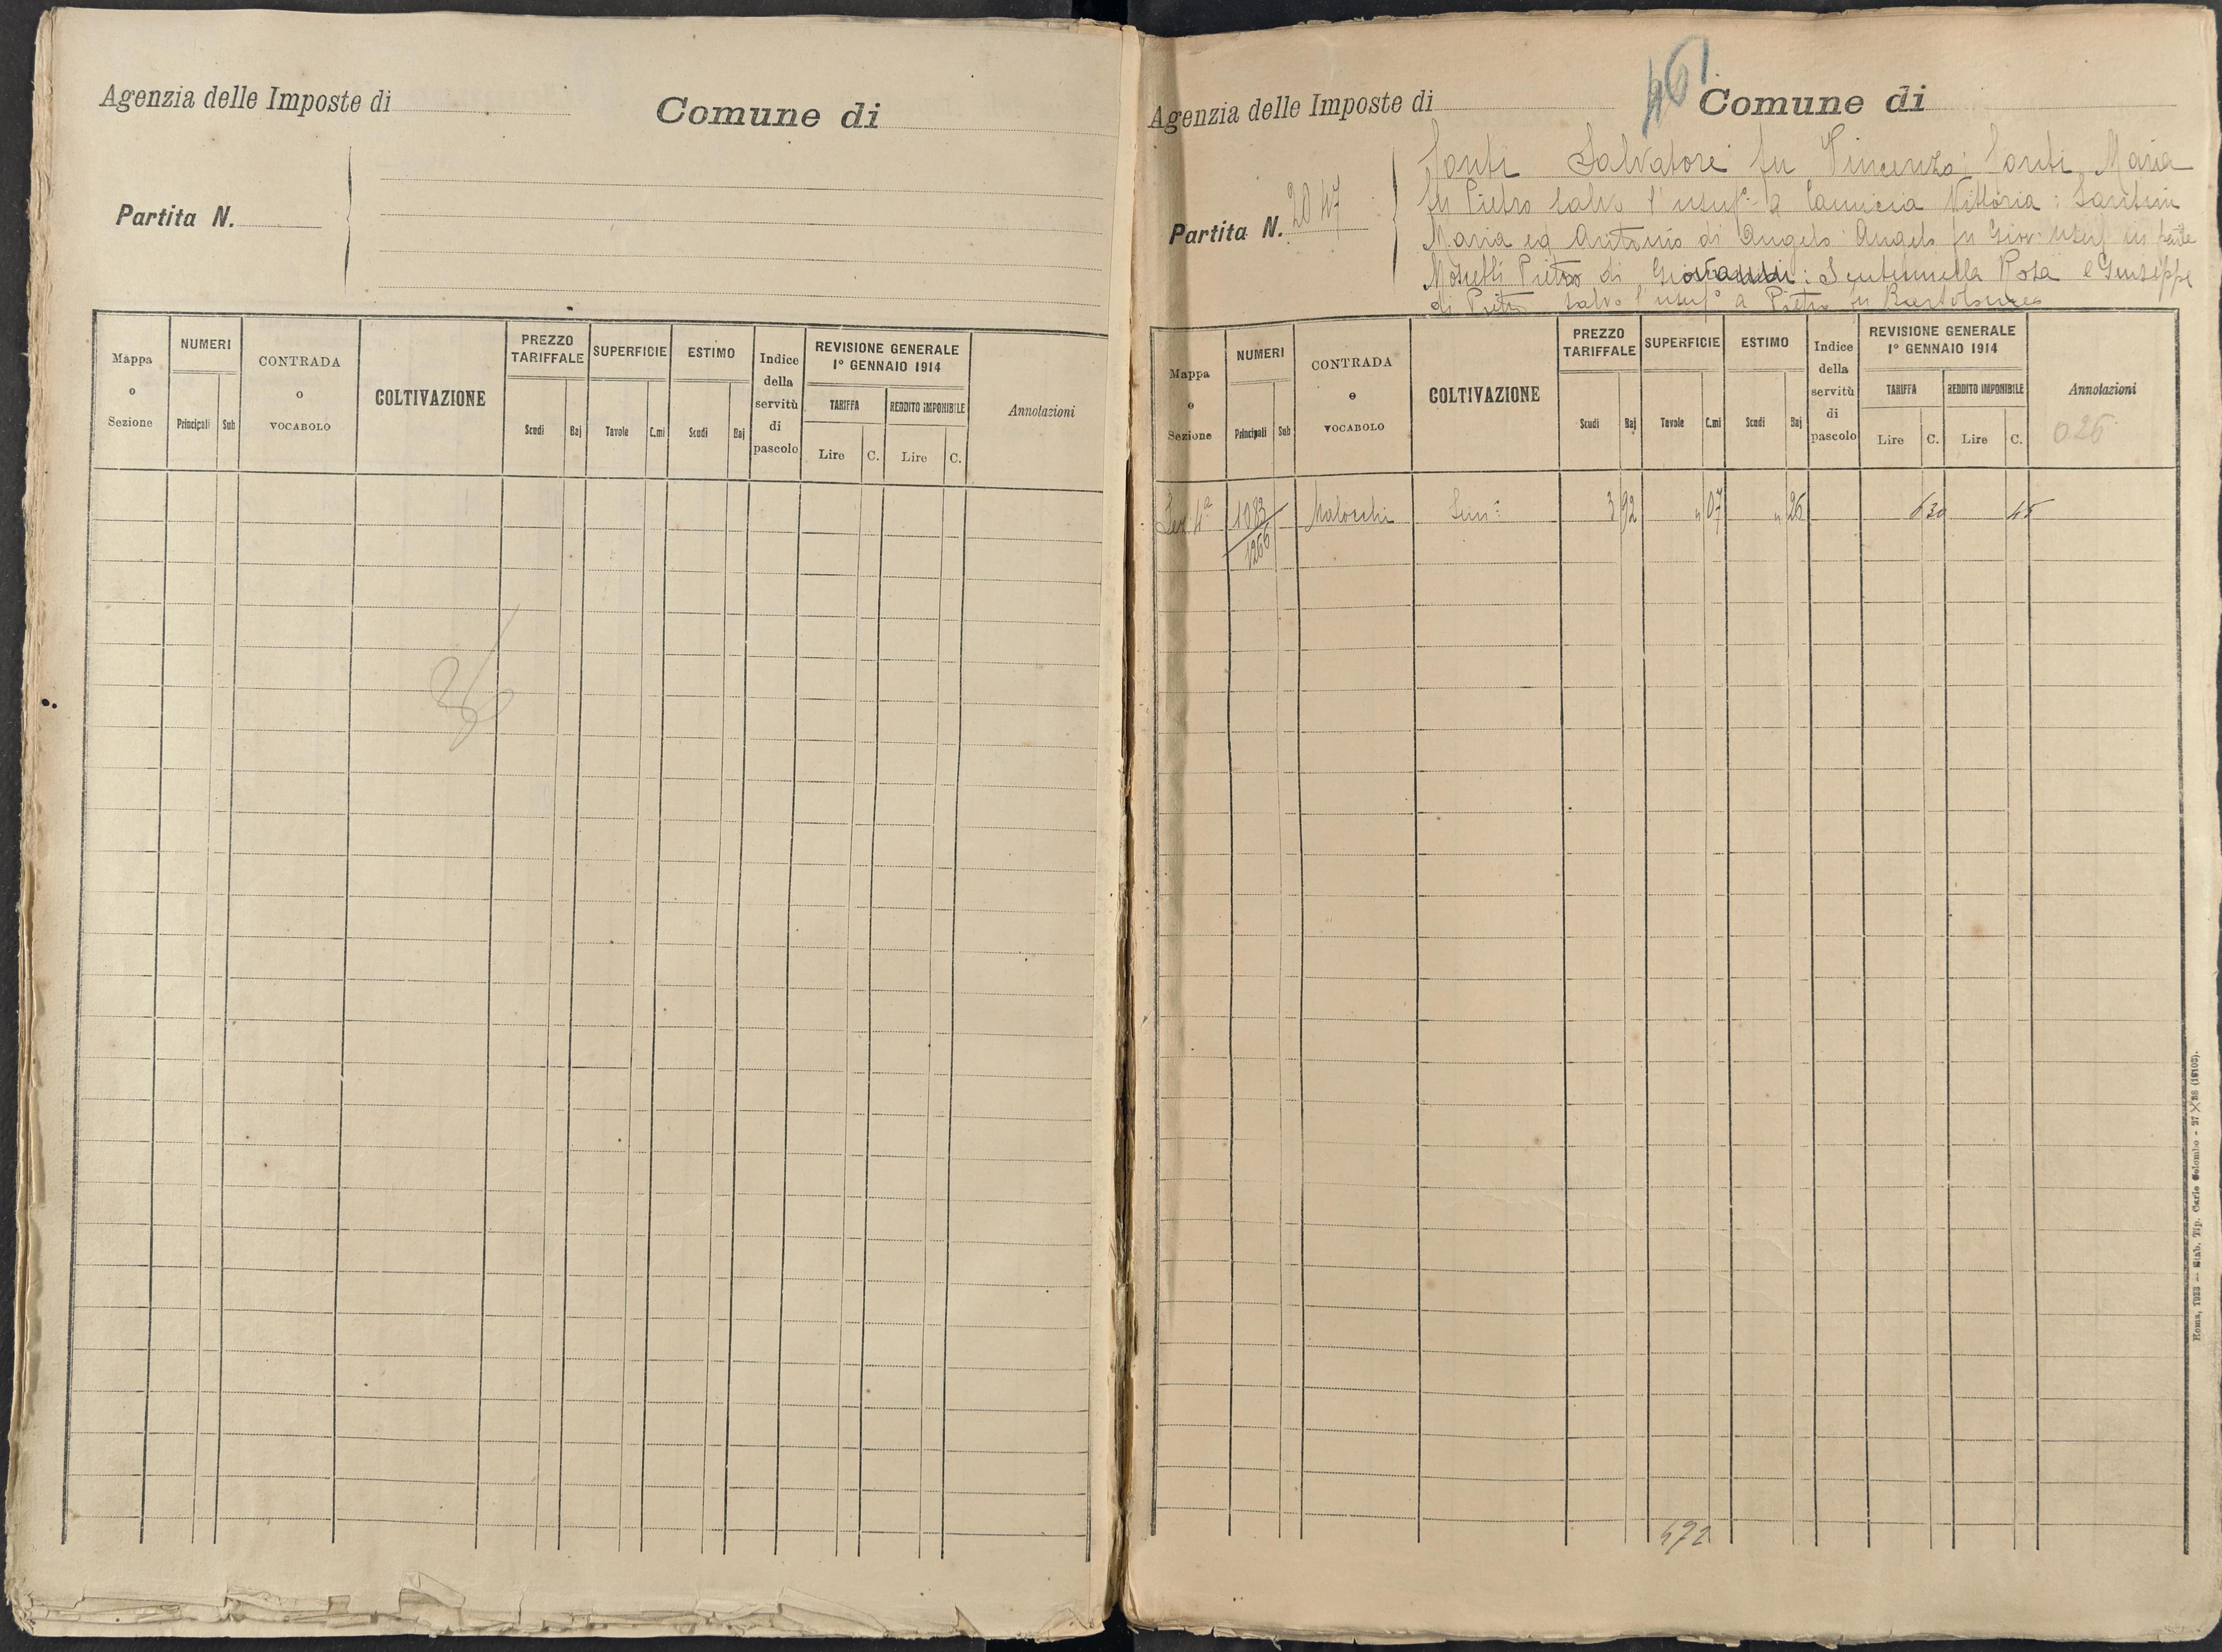 Agenzia delle Imposte di
Comune di
Partita N.
Mappa o Sezione
NUMERI
Principali Sub
CONTRADA o VOCABOLO
COLTIVAZIONE
PREZZO TARIFFALE
Scudi Baj
SUPERFICIE
Tavole C.mi
ESTIMO
Scudi Baj
Indice della servitù di pascolo
REVISIONE GENERALE 1° GENNAIO 1914
TARIFFA REDDITO IMPONIBILE
Lire C. Lire C.
Annotazioni
461
Agenzia delle Imposte di
Comune di
Partita N. 2047
Salvatore fu Vincenzo; Maria
fu Pietro salvo l'usuf° a Camicia Vittoria: Santini
Maria ed Antonio di Angelo Angelo fu Giov: usuf in parte
Pietro di Giovanni: Sentinella Rosa e Giuseppe
di Pietro salvo l'usuf° a Pietro fu Bartolomeo
Mappa o Sezione
NUMERI
Principali Sub
CONTRADA o VOCABOLO
COLTIVAZIONE
PREZZO TARIFFALE
Scudi Baj
SUPERFICIE
Tavole C.mi
ESTIMO
Scudi Baj
Indice della servitù di pascolo
REVISIONE GENERALE 1° GENNAIO 1914
TARIFFA REDDITO IMPONIBILE
Lire C. Lire C.
Annotazioni
026
Sez 4ª 1083/1266 Malocchi Sem: 3 92 " 07 " 26 6 30 45
472
Roma, 1923 — Stab. Tip. Carlo Colombo